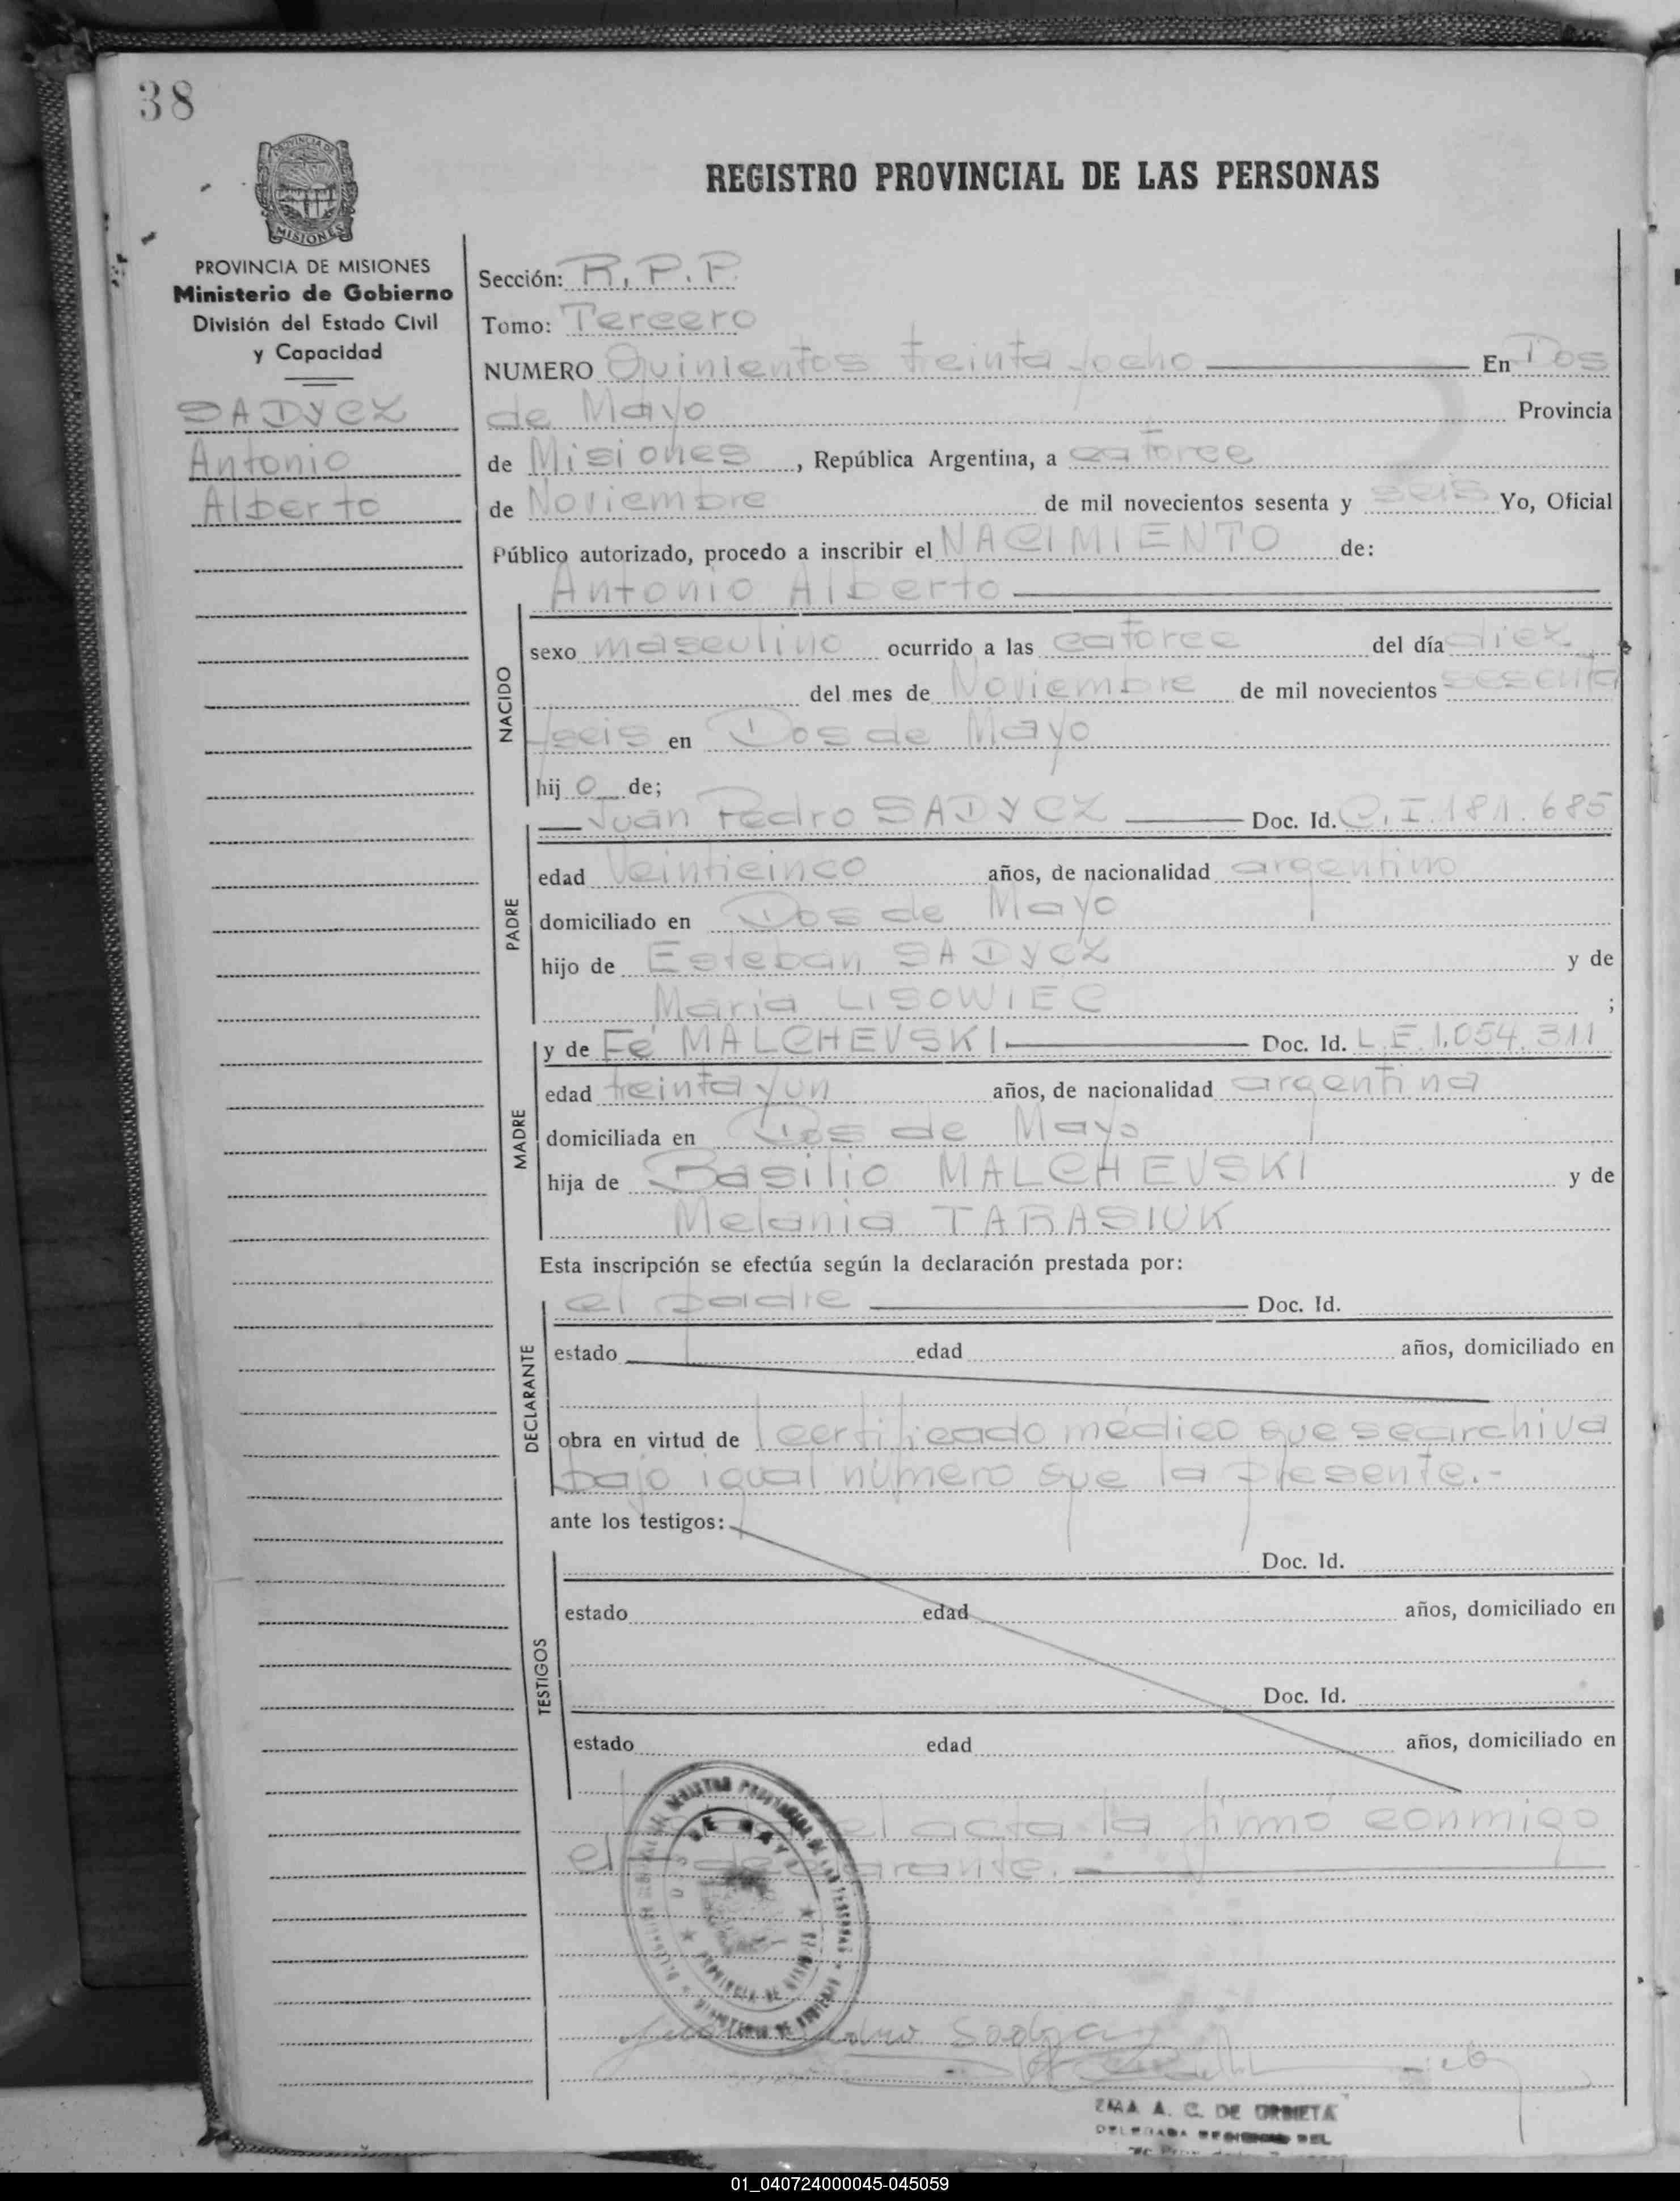 38
PROVINCIA DE
MISIONES
REGISTRO PROVINCIAL DE LAS PERSONAS
PROVINCIA DE MISIONES
Ministerio de Gobierno
División del Estado Civil
y Capacidad
SADYCZ
Antonio
Alberto
Sección: R.P.P.
Tomo: Tercero
NUMERO Quinientos treinta y ocho En Dos
de Mayo Provincia
de Misiones, República Argentina, a catorce
de Noviembre de mil novecientos sesenta y seis Yo, Oficial
Público autorizado, procedo a inscribir el NACIMIENTO de:
Antonio Alberto
NACIDO
sexo masculino ocurrido a las catorce del día diez
del mes de Noviembre de mil novecientos sesenta
y seis en Dos de Mayo
hij o de;
PADRE
Juan Pedro SADYCZ Doc. Id. C.I. 181.685
edad Veinticinco años, de nacionalidad argentino
domiciliado en Dos de Mayo
hijo de Esteban SADYCZ y de
María LISOWIEC ;
MADRE
y de Fé MALCHEVSKI Doc. Id. L.E. 1.054.311
edad treinta y un años, de nacionalidad argentina
domiciliada en Dos de Mayo
hija de Basilio MALCHEVSKI y de
Melania TARASIUK
Esta inscripción se efectúa según la declaración prestada por:
DECLARANTE
el padre Doc. Id.
estado edad años, domiciliado en
obra en virtud de certificado médico que se archiva
bajo igual número que la presente.-
ante los testigos:
TESTIGOS
Doc. Id.
estado edad años, domiciliado en
Doc. Id.
estado edad años, domiciliado en
el acta la firmó conmigo
el declarante.
REGISTRO PROVINCIAL DE LAS PERSONAS
DOS DE MAYO
PROVINCIA DE MISIONES
MINISTERIO DE GOBIERNO
Juan Pedro
A. C. DE URBIETA
DELEGADA DEL
01_040724000045-045059